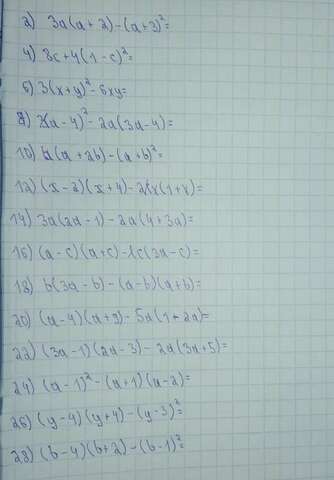 2) 3a(a+2)-(a+3)²=
4) 8c+4(1-c)²=
6) 3(x+y)²-6xy=
8) (a-4)²-2a(3a-4)=
10) a(a+2b)-(a+b)²=
12) (x-2)(x+4)-2x(1+x)=
14) 3a(2a-1)-2a(4+3a)=
16) (a-c)(a+c)-c(3a-c)=
18) b(3a-b)-(a-b)(a+b)=
20) (a-4)(a+9)-5a(1+2a)=
22) (3a-1)(2a-3)-2a(3a+5)=
24) (a-1)²-(a+1)(a-2)=
26) (y-4)(y+4)-(y-3)²=
28) (b-4)(b+2)-(b-1)²=